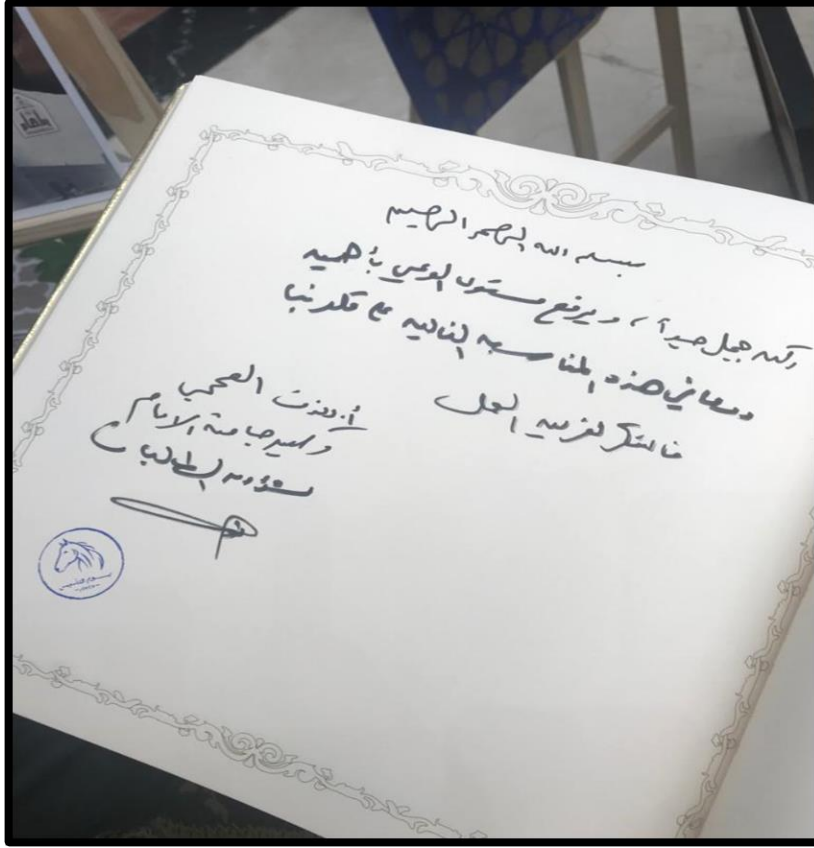 بسم الله الرحمن الرحيم
ركن جميل جداً ، ويرفع مستوى الوعي بأهمية
ومعاني هذه المناسبة الغالية على قلوبنا
فالشكر لفريق العمل
أ.د. نوت العجمي
وكيل جامعة الإمام
لشؤون الطالبات